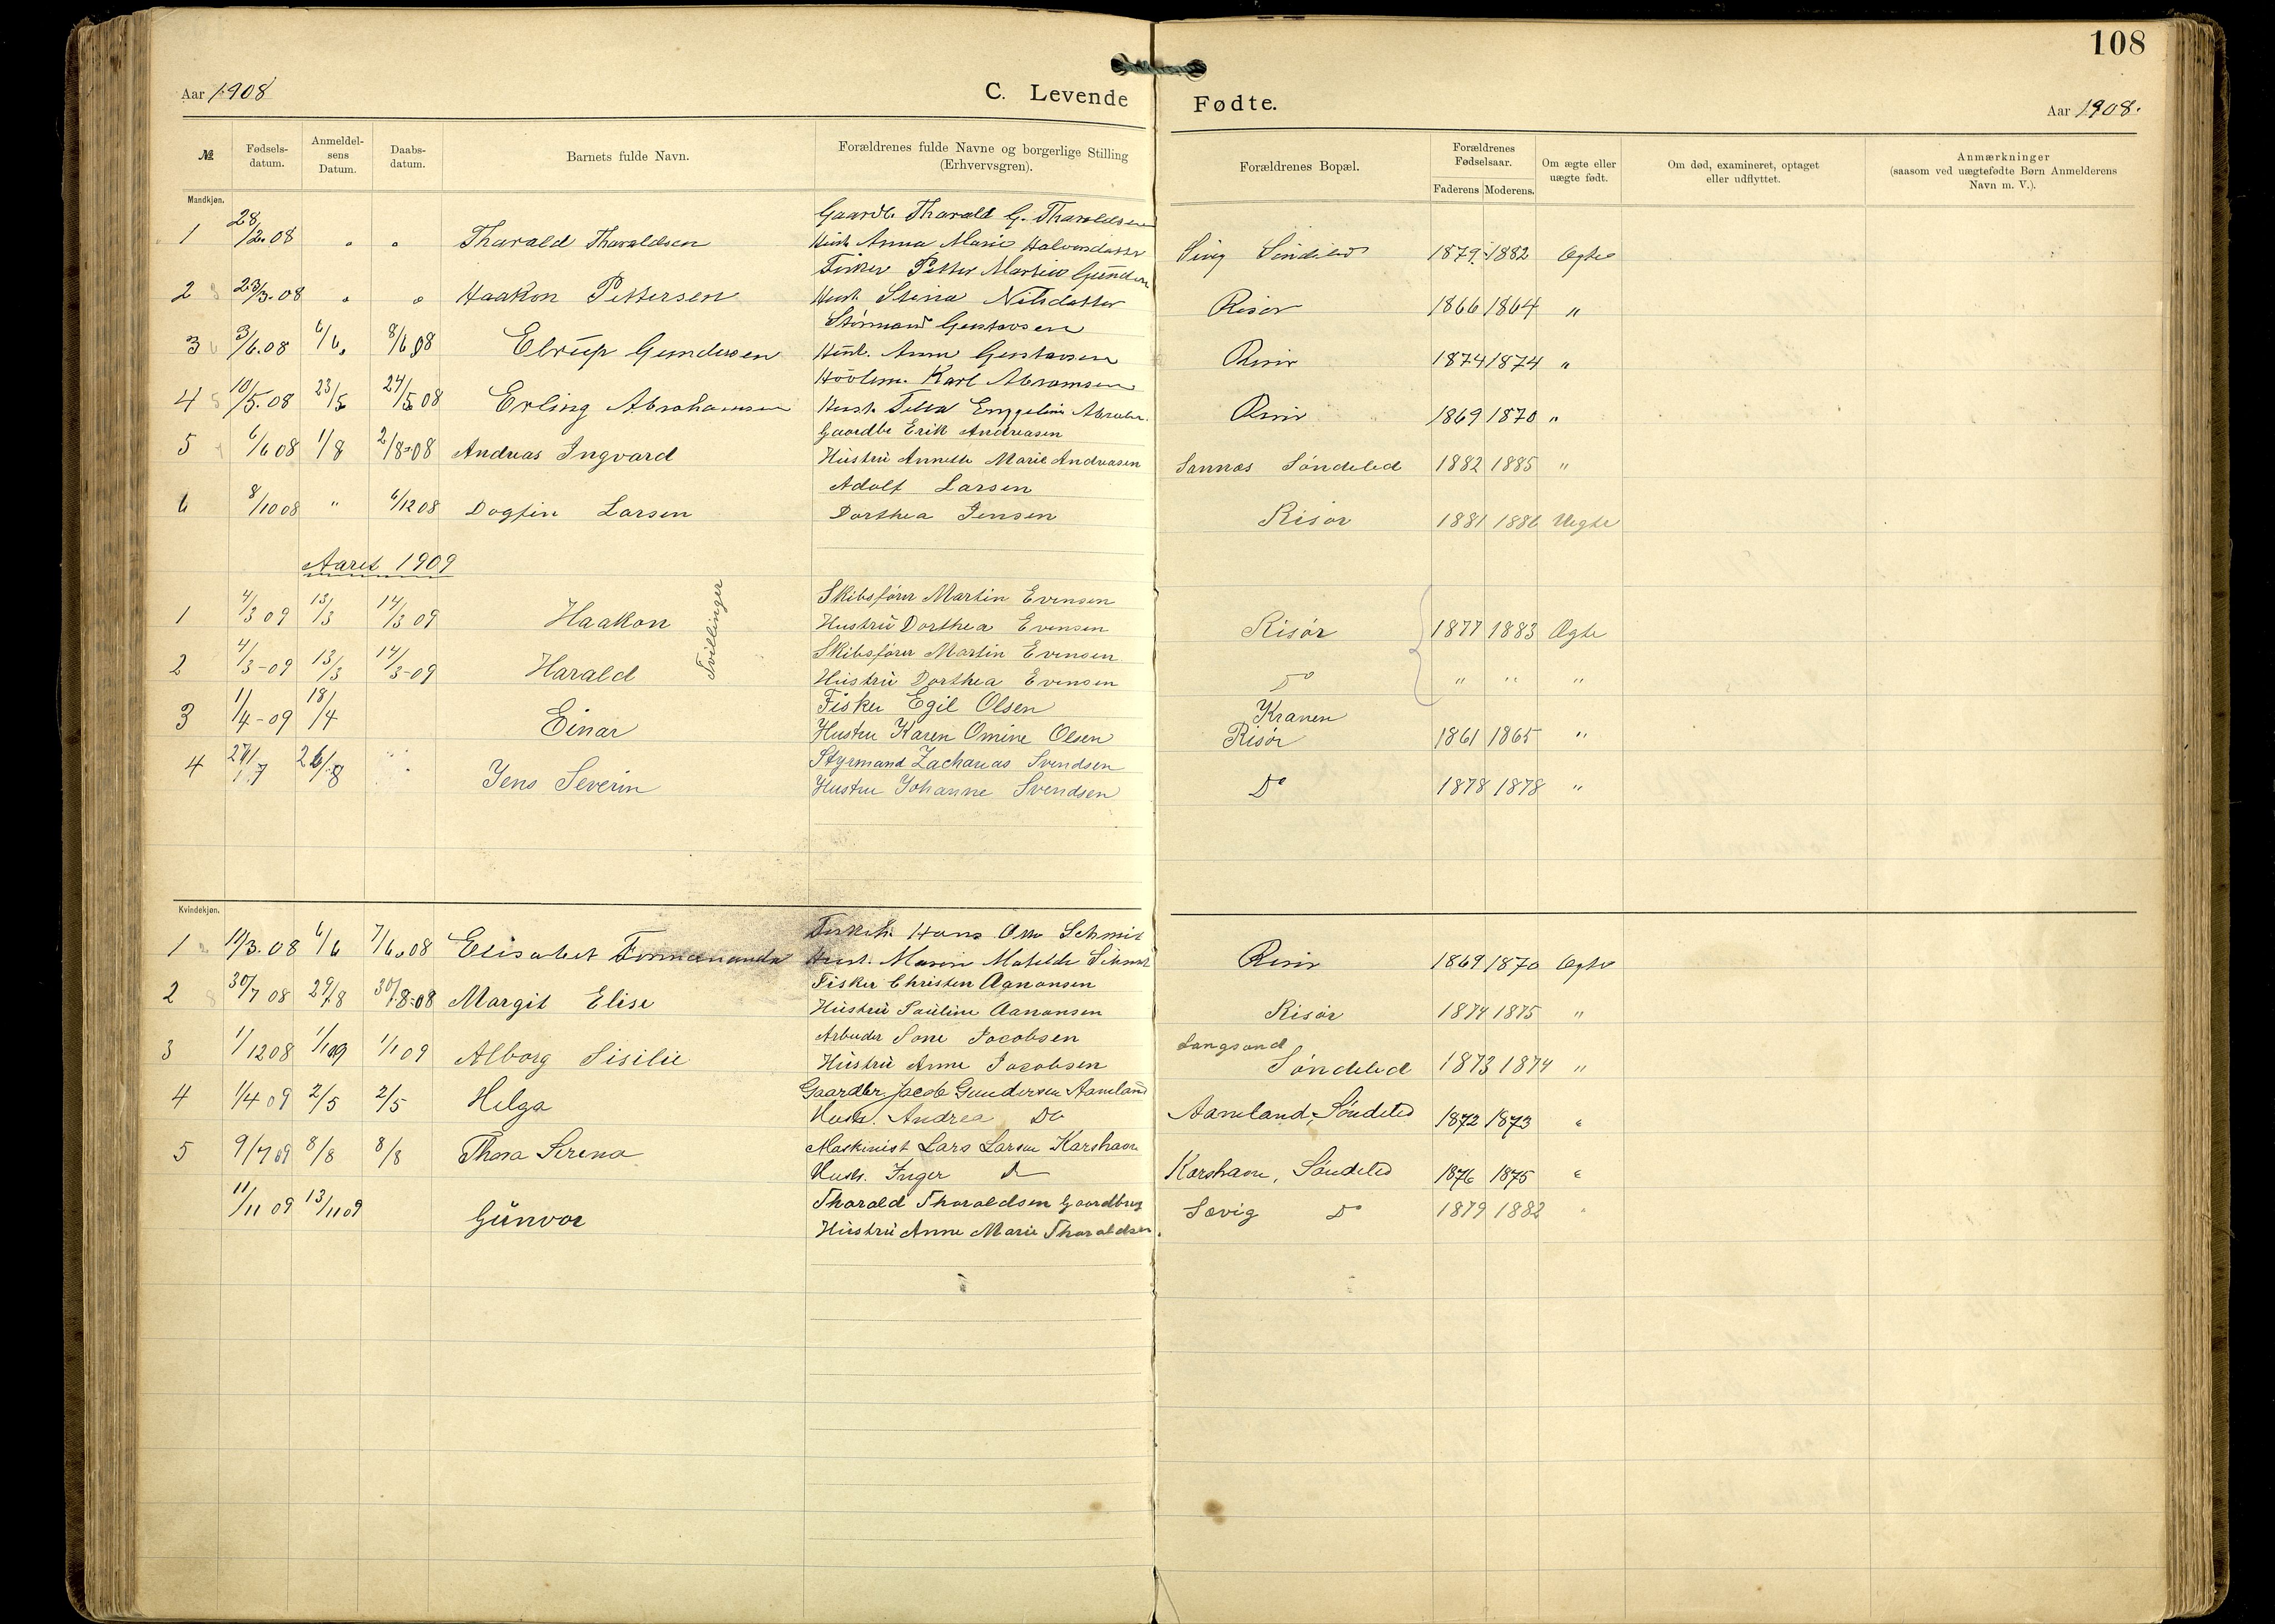 108
Aar 1908 C. Levende Fødte. Aar 1908.
№ Fødsels-datum. Anmeldel-sens Datum. Daabs-datum. Barnets fulde Navn. Forældrenes fulde Navne og borgerlige Stilling (Erhvervsgren). Forældrenes Bopæl. Forældrenes Fødselsaar. Faderens Moderens. Om ægte eller uægte født. Om død, examineret, optaget eller udflyttet. Anmærkninger (saasom ved uægtefødte Børn Anmelderens Navn m. V.).
Mandkjøn.
Gaardb. Tharald G. Tharaldsen
1 28/2.08 " " Tharald Tharaldsen Hust. Anna Marie Halvorsdatter 1879 1882 Ægte
Fisker Petter Martin
2 23/3.08 " " Haakon Pettersen Hust. Stina Nilsdatter Risør 1866 1864 "
Gustavsen
3 3/6.08 6/6 8/6 08 Elrup Gundersen Hust. Anna Gustavsen Risør 1874 1874 "
Karl Abramsen
4 10/5.08 23/5 24/5 08 Erling Abrahamsen Hust. Risør 1869 1870 "
Gaardbr Erik Andreasen
5 6/6 08 1/8 2/8-08 Andreas Ingvard Hustru Annette Marie Andreasen Sannæs Søndeled 1882 1885 "
Adolf Larsen
6 8/10 08 " 6/12 08 Dagfin Larsen Dorthea Jensen Risør 1881 1886 Uegte
Aaret 1909
Skibsfører Martin Evensen
1 4/3 09 13/3 14/3 09 Haakon Tvillinger Hustru Dorthea Evensen Risør 1877 1883 Ægte
Skibsfører Martin Evensen
2 4/3-09 13/3 14/3-09 Harald Hustru Dorthea Evensen Do " " "
Fisker Egil Olsen Kranen
3 1/4-09 18/4 Einar Hustru Karen Omine Olsen Risør 1861 1865 "
Styrmand Zacharias Svendsen
4 27/7 26/8 Jens Severin Hustru Johanne Svendsen Do 1878 1878 "
Kvindekjøn.
Hans Otto Schmit
1 11/3.08 6/6 7/6.08 Elisabet Hust. Maren Matilde Schmit Risør 1869 1870 Ægte
Fisker Christen Aanonsen
2 30/7 08 29/8 30/8-08 Margit Elise Hustru Pauline Aanonsen Risør 1874 1875 "
Arbeider Sone Jacobsen Langsand
3 1/12 08 1/1 09 1/1 09 Alborg Sisilie Hustru Anne Jacobsen Søndeled 1873 1874 "
Gaardbr. Jacob Gundersen Aameland
4 1/4 09 2/5 2/5 Helga Hustr. Andrea Do Aameland, Søndeled 1872 1873 "
Maskinist Lars Larsen Korshavn
5 9/7 09 8/8 8/8 Thora Serena Hustr. Inger Do Korshavn, Søndeled 1876 1875 "
Tharald Tharaldsen Gaardbrug
11/11 09 13/11 09 Gunvor Hustru Anne Marie Tharaldsen. Sævig Do 1879 1882 "